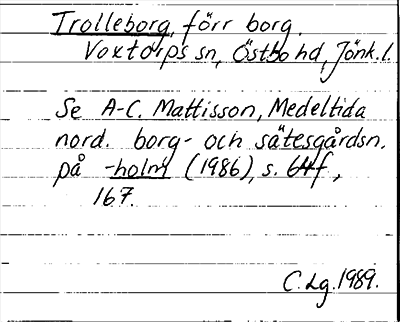 Trolleborg, förr borg.
Voxtorps sn, Östbo hd, Jönk.l.
Se A-C. Mattisson, Medeltida
nord. borg- och sätesgårdsn.
på -holm (1986), s. 64f,
167.
C.Lg.1989.